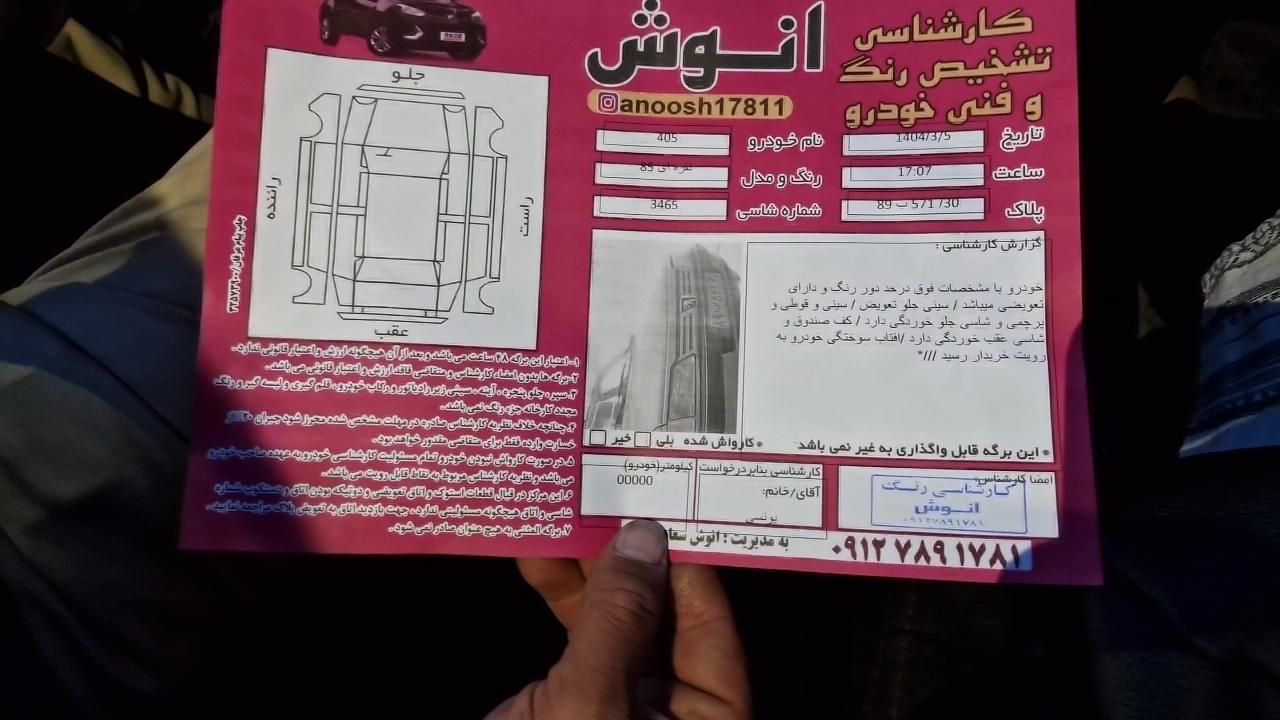 کارشناسی
تشخیص رنگ
و فنی خودرو
انوش
anoosh17811
تاریخ
1404/3/5
نام خودرو
405
ساعت
17:07
رنگ و مدل
نقره ای 85
پلاک
89 ب 571 /30
شماره شاسی
3465
جلو
راننده
راست
عقب
گزارش کارشناسی :
خودرو با مشخصات فوق درحد دور رنگ و دارای
تعویضی میباشد / سینی جلو تعویض / سینی و قوطی و
پرچمی و شاسی جلو خوردگی دارد / کف صندوق و
شاسی عقب خوردگی دارد /افتاب سوختگی خودرو به
رویت خریدار رسید ///*
* این برگه قابل واگذاری به غیر نمی باشد
* کارواش شده بلی خیر
امضا کارشناس:
کارشناسی رنگ
انوش
۰۹۱۲۷۸۹۱۷۸۱
کارشناسی بنابردرخواست
آقای/خانم:
یونسی
کیلومتر(خودرو)
00000
به مدیریت : انوش
۰۹۱۲ ۷۸۹ ۱۷۸۱
۱- اعتبار این برگه ۴۸ ساعت می باشد و بعد از آن هیچگونه ارزش و اعتبار قانونی ندارد .
۲- برگه ها بدون امضاء کارشناس و متقاضی فاقد ارزش و اعتبار قانونی می باشد .
۳. سپر ، جلو پنجره ، آینه ، سینی زیر رادیاتور و رکاب خودرو ، قلم گیری و لیسه گیر و رنگ
مجدد کارخانه جزء رنگ نمی باشد .
۴. چنانچه خلاف نظریه کارشناس صادره در مهلت مشخص شده محرز شود جبران ۳۰٪ از
خسارت وارده فقط برای متقاضی مقدور خواهد بود .
۵. در صورت کارواش نبودن خودرو تمام مسئولیت کارشناسی خودرو به عهده صاحب خودرو
می باشد و نظریه کارشناس مربوط به نقاط قابل رویت می باشد .
۶. این مرکز در قبال قطعات استوک و اتاق تعویضی و دوتیکه بودن اتاق و دستکوب شماره
شاسی و اتاق هیچگونه مسئولیتی ندارد ، جهت بازدید اتاق به تعویض پلاک مراجعه نمایید .
۷. برگه المثنی به هیچ عنوان صادر نمی شود .